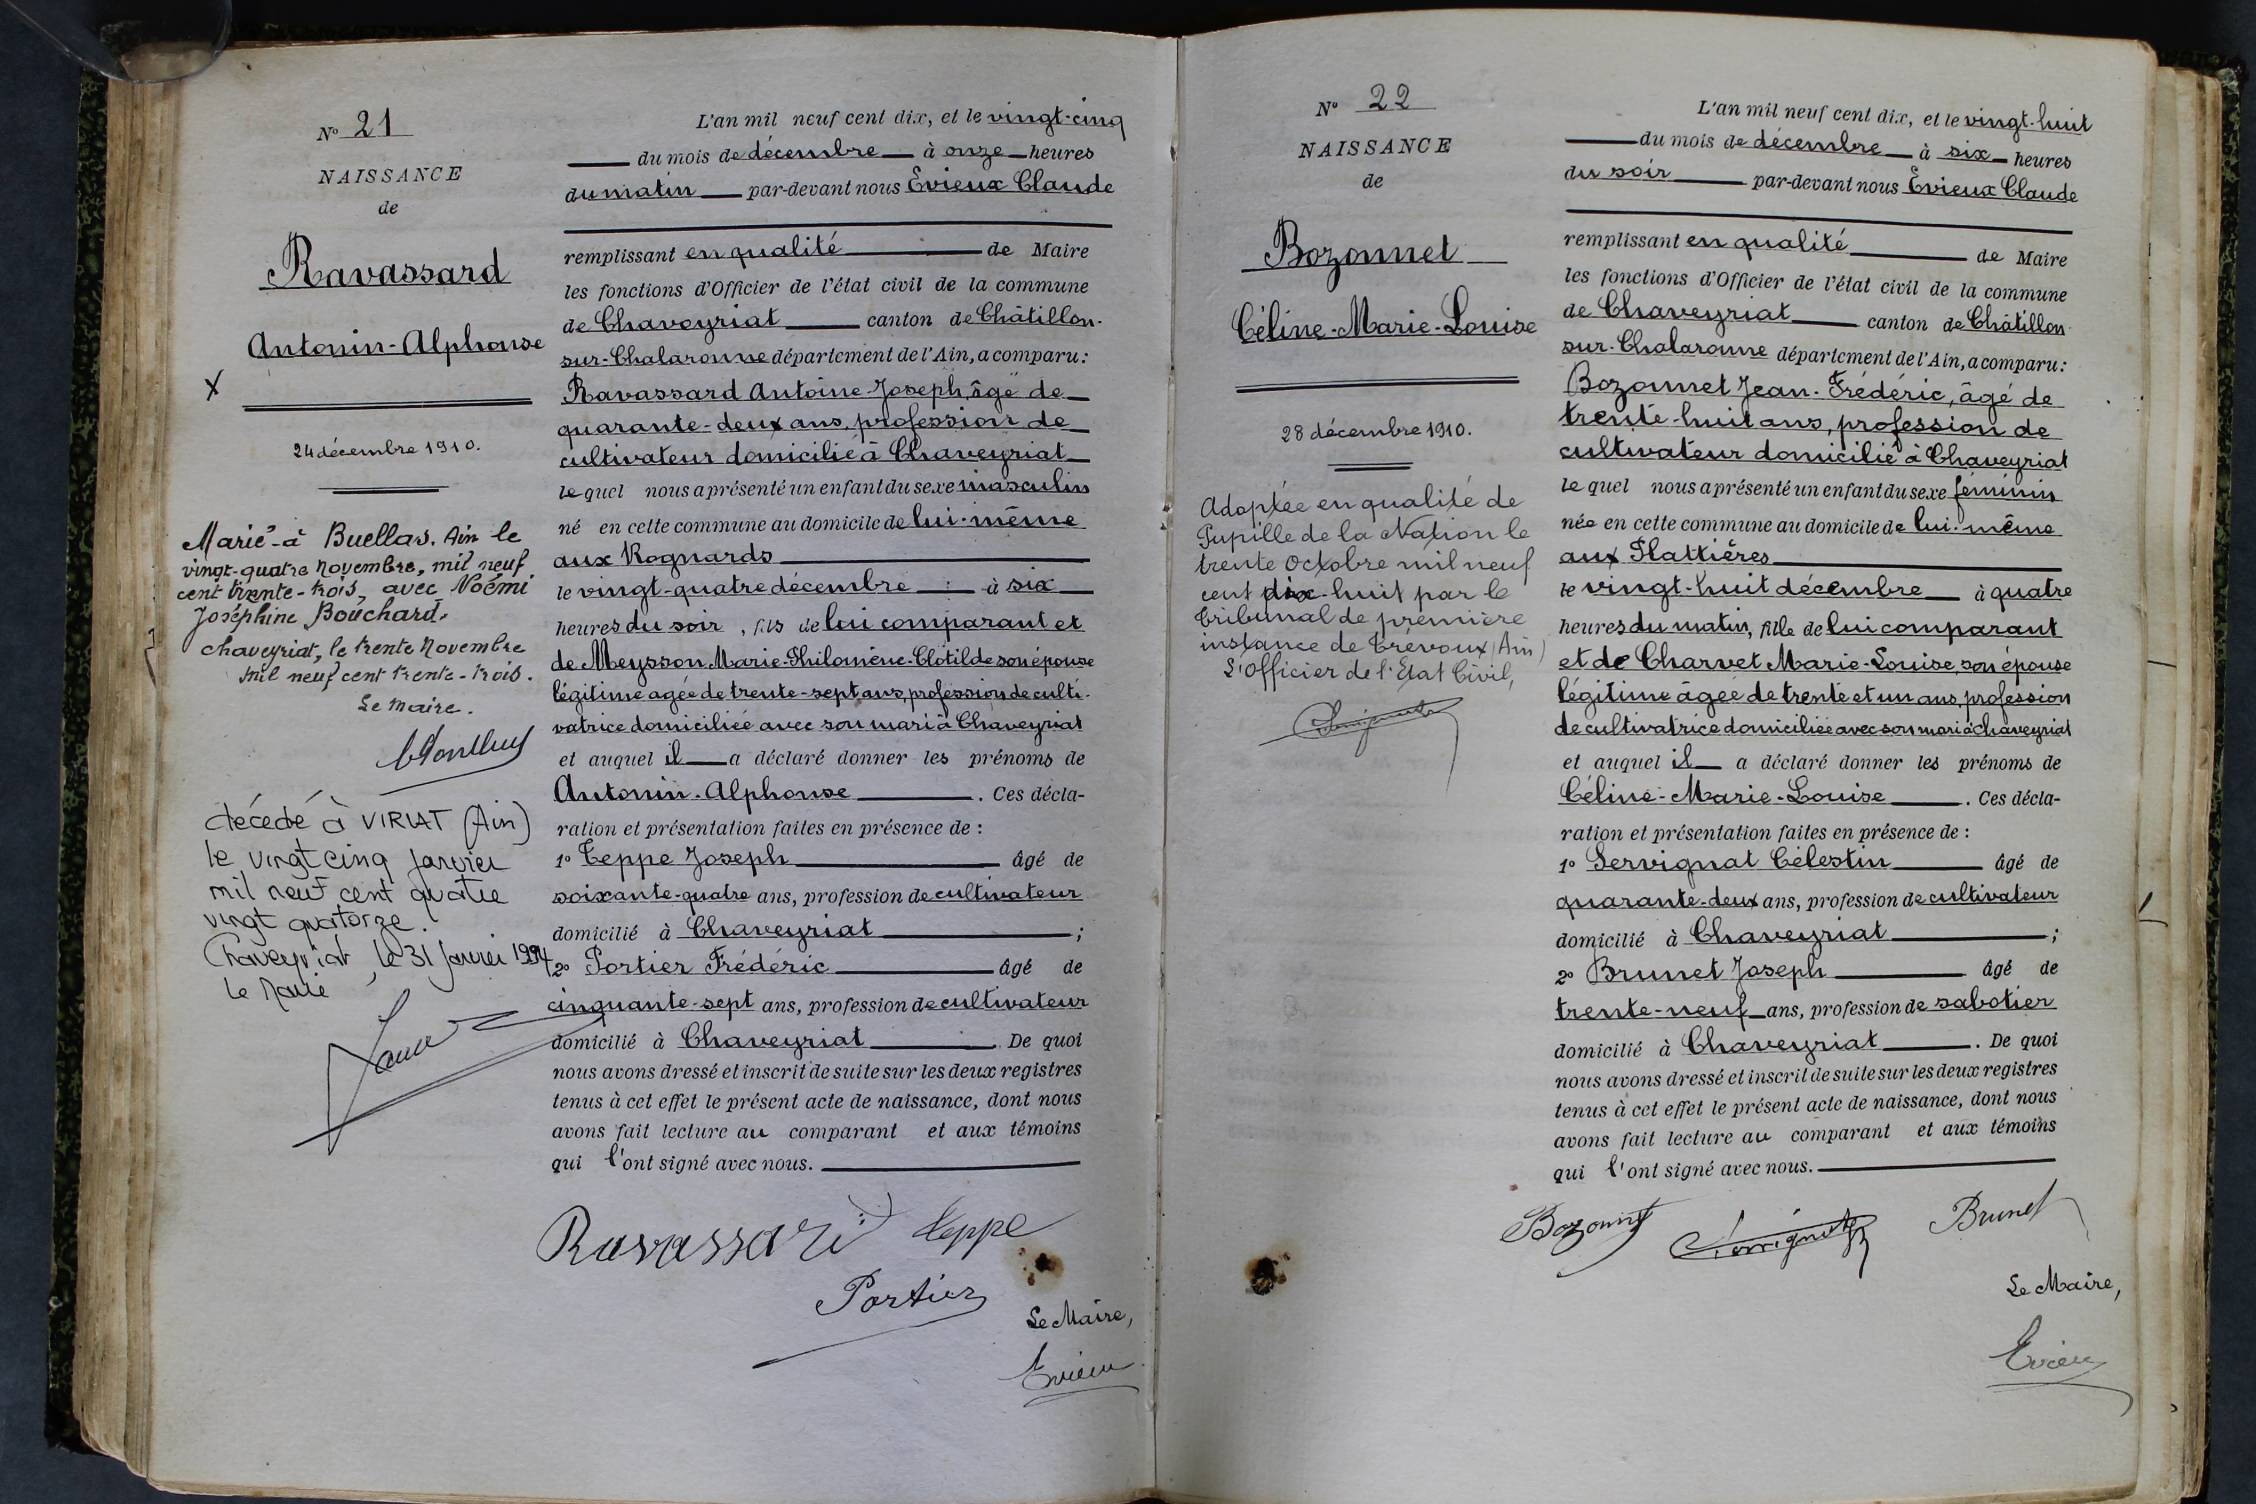 N° 21
NAISSANCE
de
Ravassard
Antonin-Alphonse
X
24 décembre 1910.
Marié à Buellas. Ain le
vingt-quatre novembre, mil neuf
cent trente-trois, avec Noémi
Joséphine Bouchard.
Chaveyriat, le trente Novembre
mil neuf cent trente-trois.
Le Maire.
décédé à VIRIAT (Ain)
le vingt cinq janvier
mil neuf cent quatre
vingt quatorze.
Chaveyriat, le 31 janvier 1994
Le Maire
L'an mil neuf cent dix, et le vingt-cinq
du mois de décembre à onze heures
du matin par-devant nous Evieux Claude
remplissant en qualité de Maire
les fonctions d'Officier de l'état civil de la commune
de Chaveyriat canton de Châtillon-
sur-Chalaronne département de l'Ain, a comparu:
Ravassard Antoine-Joseph, âgé de
quarante-deux ans, profession de
cultivateur domicilié à Chaveyriat
lequel nous a présenté un enfant du sexe masculin
né en cette commune au domicile de lui-même
aux Rognards
le vingt-quatre décembre à six
heures du soir, fils de lui comparant et
de Meysson Marie-Philomène-Clotilde son épouse
légitime agée de trente-sept ans, profession de culti-
vatrice domiciliée avec son mari à Chaveyriat
et auquel il a déclaré donner les prénoms de
Antonin-Alphonse. Ces décla-
ration et présentation faites en présence de :
1° Teppe Joseph âgé de
soixante-quatre ans, profession de cultivateur
domicilié à Chaveyriat ;
2° Portier Frédéric âgé de
cinquante-sept ans, profession de cultivateur
domicilié à Chaveyriat. De quoi
nous avons dressé et inscrit de suite sur les deux registres
tenus à cet effet le présent acte de naissance, dont nous
avons fait lecture au comparant et aux témoins
qui l'ont signé avec nous.
Ravassard Teppe
Portier
Le Maire,
Evieux
N° 22
NAISSANCE
de
Bozonnet
Céline-Marie-Louise
28 décembre 1910.
Adoptée en qualité de
Pupille de la Nation le
trente Octobre mil neuf
cent dix-huit par le
Tribunal de première
instance de Trévoux (Ain)
L'Officier de l'Etat Civil,
L'an mil neuf cent dix, et le vingt-huit
du mois de décembre à six heures
du soir par-devant nous Evieux Claude
remplissant en qualité de Maire
les fonctions d'Officier de l'état civil de la commune
de Chaveyriat canton de Châtillon-
sur-Chalaronne département de l'Ain, a comparu:
Bozonnet Jean-Frédéric, âgé de
trente-huit ans, profession de
cultivateur domicilié à Chaveyriat
lequel nous a présenté un enfant du sexe féminin
née en cette commune au domicile de lui-même
aux Plattières
le vingt-huit décembre à quatre
heures du matin, fille de lui comparant
et de Charvet Marie-Louise, son épouse
légitime âgée de trente et un ans, profession
de cultivatrice domiciliée avec son mari à Chaveyriat
et auquel il a déclaré donner les prénoms de
Céline-Marie-Louise. Ces décla-
ration et présentation faites en présence de :
1° Servignat Célestin âgé de
quarante-deux ans, profession de cultivateur
domicilié à Chaveyriat ;
2° Brunet Joseph âgé de
trente-neuf ans, profession de sabotier
domicilié à Chaveyriat. De quoi
nous avons dressé et inscrit de suite sur les deux registres
tenus à cet effet le présent acte de naissance, dont nous
avons fait lecture au comparant et aux témoins
qui l'ont signé avec nous.
Bozonnet Servignat Brunet
Le Maire,
Evieux